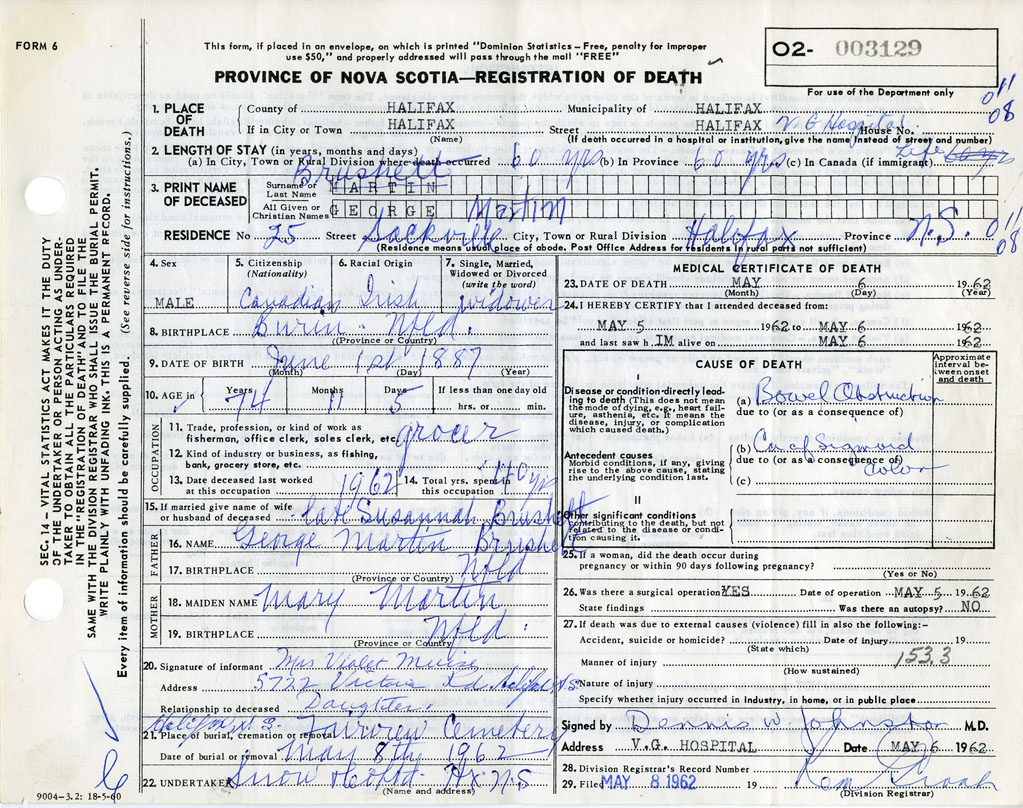 FORM 6
This form, if placed in an envelope, on which is printed "Dominion Statistics—Free, penalty for improper
use $50," and properly addressed will pass through the mail "FREE"
O2- 003129
For use of the Department only
PROVINCE OF NOVA SCOTIA—REGISTRATION OF DEATH
011
08
1. PLACE OF DEATH
County of HALIFAX Municipality of HALIFAX
If in City or Town HALIFAX Street HALIFAX V.G Hospital House No.
(Name) (If death occurred in a hospital or institution, give the name instead of street and number)
2. LENGTH OF STAY (in years, months and days)
(a) In City, Town or Rural Division where death occurred 60 yrs (b) In Province 60 yrs. (c) In Canada (if immigrant) Life
3. PRINT NAME OF DECEASED
Surname or Last Name MARTIN Brushett
All Given or Christian Names GEORGE Martin
RESIDENCE No 25 Street Sackville City, Town or Rural Division Halifax Province N.S. 011
08
(Residence means usual place of abode. Post Office Address for residents in rural parts not sufficient)
4. Sex MALE
5. Citizenship (Nationality) Canadian
6. Racial Origin Irish
7. Single, Married, Widowed or Divorced (write the word) widower
8. BIRTHPLACE Burin - Nfld.
(Province or Country)
9. DATE OF BIRTH June 1st 1887
(Month) (Day) (Year)
10. AGE in Years 74 Months 11 Days 5 If less than one day old
hrs. or min.
OCCUPATION
11. Trade, profession, or kind of work as
fisherman, office clerk, sales clerk, etc. grocer
12. Kind of industry or business, as fishing,
bank, grocery store, etc.
13. Date deceased last worked
at this occupation 1962
14. Total yrs. spent in
this occupation 40 yrs
15. If married give name of wife
or husband of deceased late Susannah Brushett
FATHER
16. NAME George Martin Brushett
17. BIRTHPLACE Nfld
(Province or Country)
MOTHER
18. MAIDEN NAME Mary Martin
19. BIRTHPLACE Nfld.
(Province or Country)
20. Signature of informant Mrs Violet Muise
Address 5722 Victoria Rd. Halifax N.S.
Relationship to deceased Daughter.
Halifax N.S.
21. Place of burial, cremation or removal Fairview Cemetery
Date of burial or removal May 8th 1962
22. UNDERTAKER Snow & Co Ltd. Hx N.S
(Name and address)
9004-3.2: 18-5-60
MEDICAL CERTIFICATE OF DEATH
23. DATE OF DEATH MAY 6 1962
(Month) (Day) (Year)
24. I HEREBY CERTIFY that I attended deceased from:
MAY 5 1962 to MAY 6 1962
and last saw h IM alive on MAY 6 1962
CAUSE OF DEATH
Approximate interval between onset and death
I
Disease or condition directly leading to death (This does not mean the mode of dying, e.g., heart failure, asthenia, etc. It means the disease, injury, or complication which caused death.)
(a) Bowel Obstruction
due to (or as a consequence of)
Antecedent causes
Morbid conditions, if any, giving rise to the above cause, stating the underlying condition last.
(b) Ca of Sigmoid
due to (or as a consequence of) Colon
(c)
II
Other significant conditions
contributing to the death, but not related to the disease or condition causing it.
25. If a woman, did the death occur during
pregnancy or within 90 days following pregnancy?
(Yes or No)
26. Was there a surgical operation? YES Date of operation MAY 5 1962
State findings Was there an autopsy? NO
27. If death was due to external causes (violence) fill in also the following:—
Accident, suicide or homicide? Date of injury 19
(State which)
Manner of injury 153.3
(How sustained)
Nature of injury
Specify whether injury occurred in industry, in home, or in public place
Signed by Dennis W Johnston M.D.
Address V.G. HOSPITAL Date MAY 6 1962
28. Division Registrar's Record Number
29. Filed MAY 8 1962 19
(Division Registrar)
SEC. 14 – VITAL STATISTICS ACT MAKES IT THE DUTY
OF THE UNDERTAKER OR PERSON ACTING AS UNDERTAKER TO OBTAIN ALL THE PARTICULARS REQUIRED
IN THE "REGISTRATION OF DEATH" AND TO FILE THE
SAME WITH THE DIVISION REGISTRAR WHO SHALL ISSUE THE BURIAL PERMIT.
WRITE PLAINLY WITH UNFADING INK. THIS IS A PERMANENT RECORD.
Every item of information should be carefully supplied. (See reverse side for instructions.)